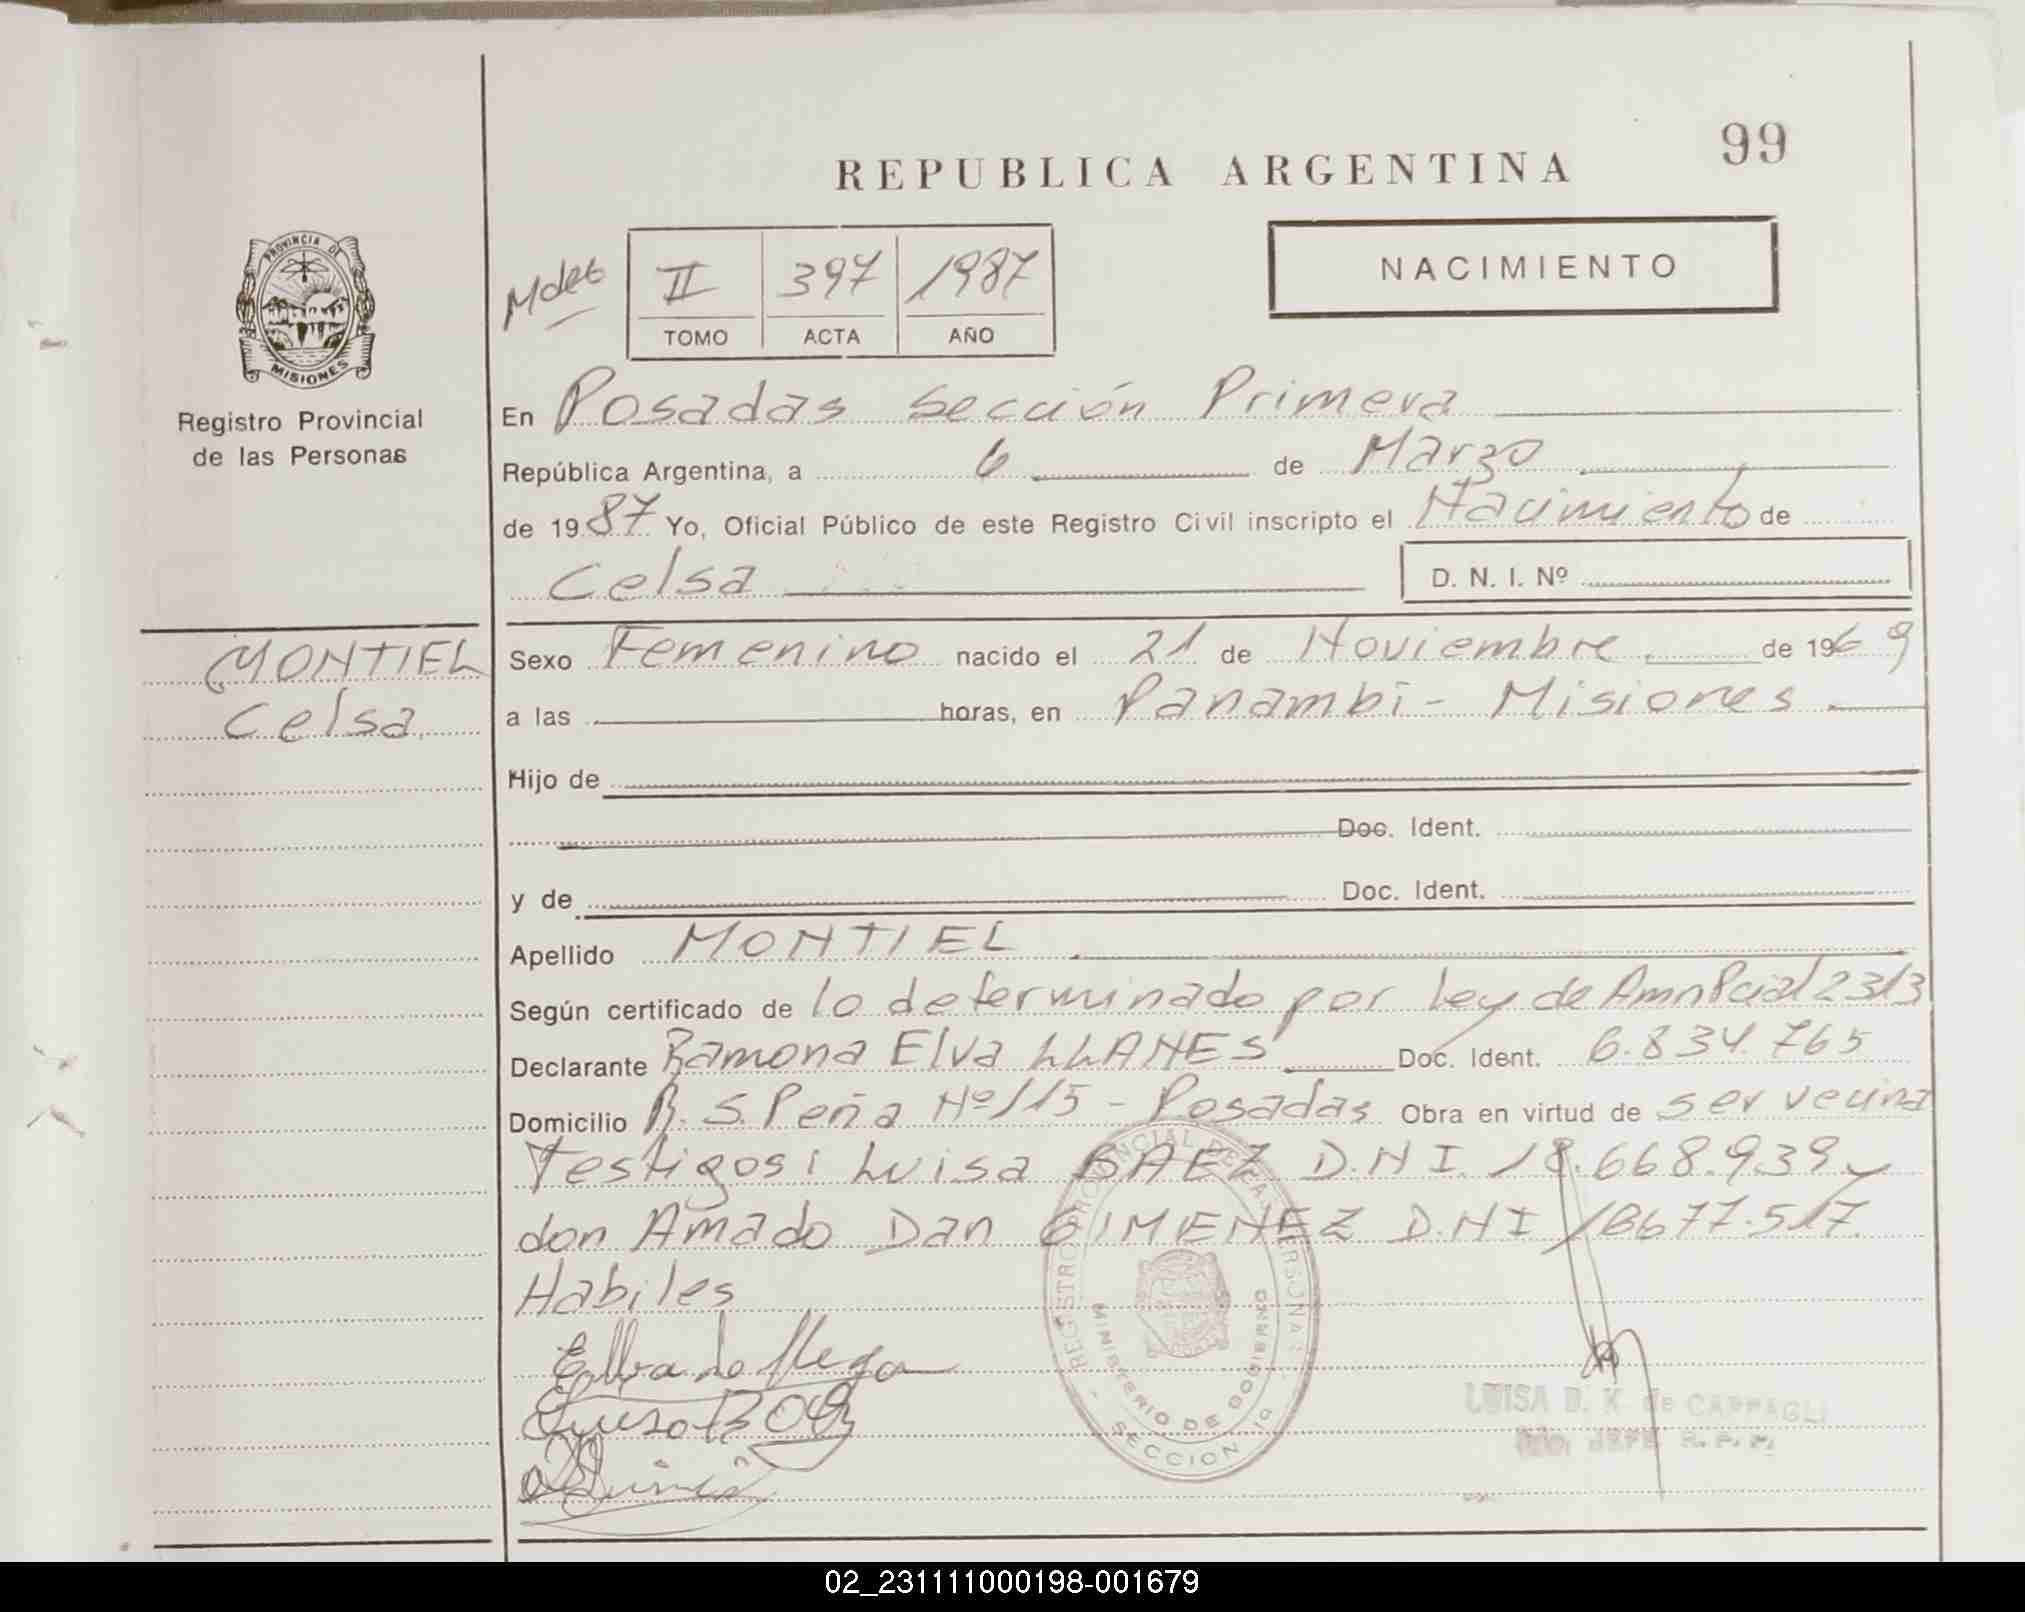 99
REPUBLICA ARGENTINA
PROVINCIA DE
MISIONES
Registro Provincial
de las Personas
II 397 1987
TOMO ACTA AÑO
NACIMIENTO
En Posadas Sección Primera
República Argentina, a 6 de Marzo
de 1987 Yo, Oficial Público de este Registro Civil inscripto el Nacimiento de
Celsa D. N. I. Nº
MONTIEL
Celsa
Sexo Femenino nacido el 21 de Noviembre de 1969
a las horas, en Panambí - Misiones
Hijo de
Doc. Ident.
y de Doc. Ident.
Apellido MONTIEL
Según certificado de lo determinado por Ley de Amn Pcial 2313
Declarante Ramona Elva LLANES Doc. Ident. 6.834.765
Domicilio R. S. Peña Nº 115 - Posadas Obra en virtud de ser vecina
Testigos: Luisa BAEZ D.N I. 18.668.939 y
don Amado Dan GIMENEZ D.N I 18677.517
Habiles
REGISTRO PROVINCIAL DE LAS PERSONAS
MINISTERIO DE GOBIERNO
SECCION 1a
LUISA D. K de CAPPAGLI
JEFE R. P. P.
02_231111000198-001679